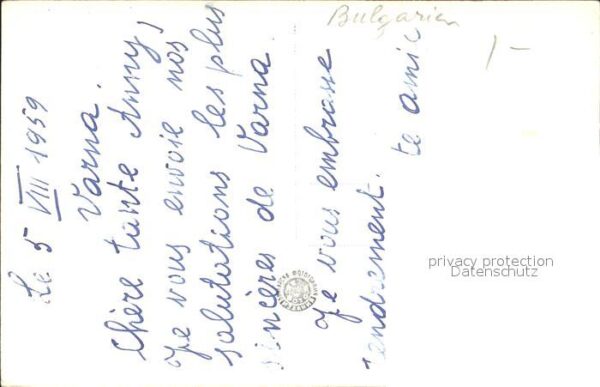 Bulgarien
1-
Le 5 VIII 1959
Varna.
Chère tante Anny,
Je vous envoie nos
salutations les plus
sincères de Varna.
Je vous embrasse
tendrement.
te amie
privacy protection
Datenschutz